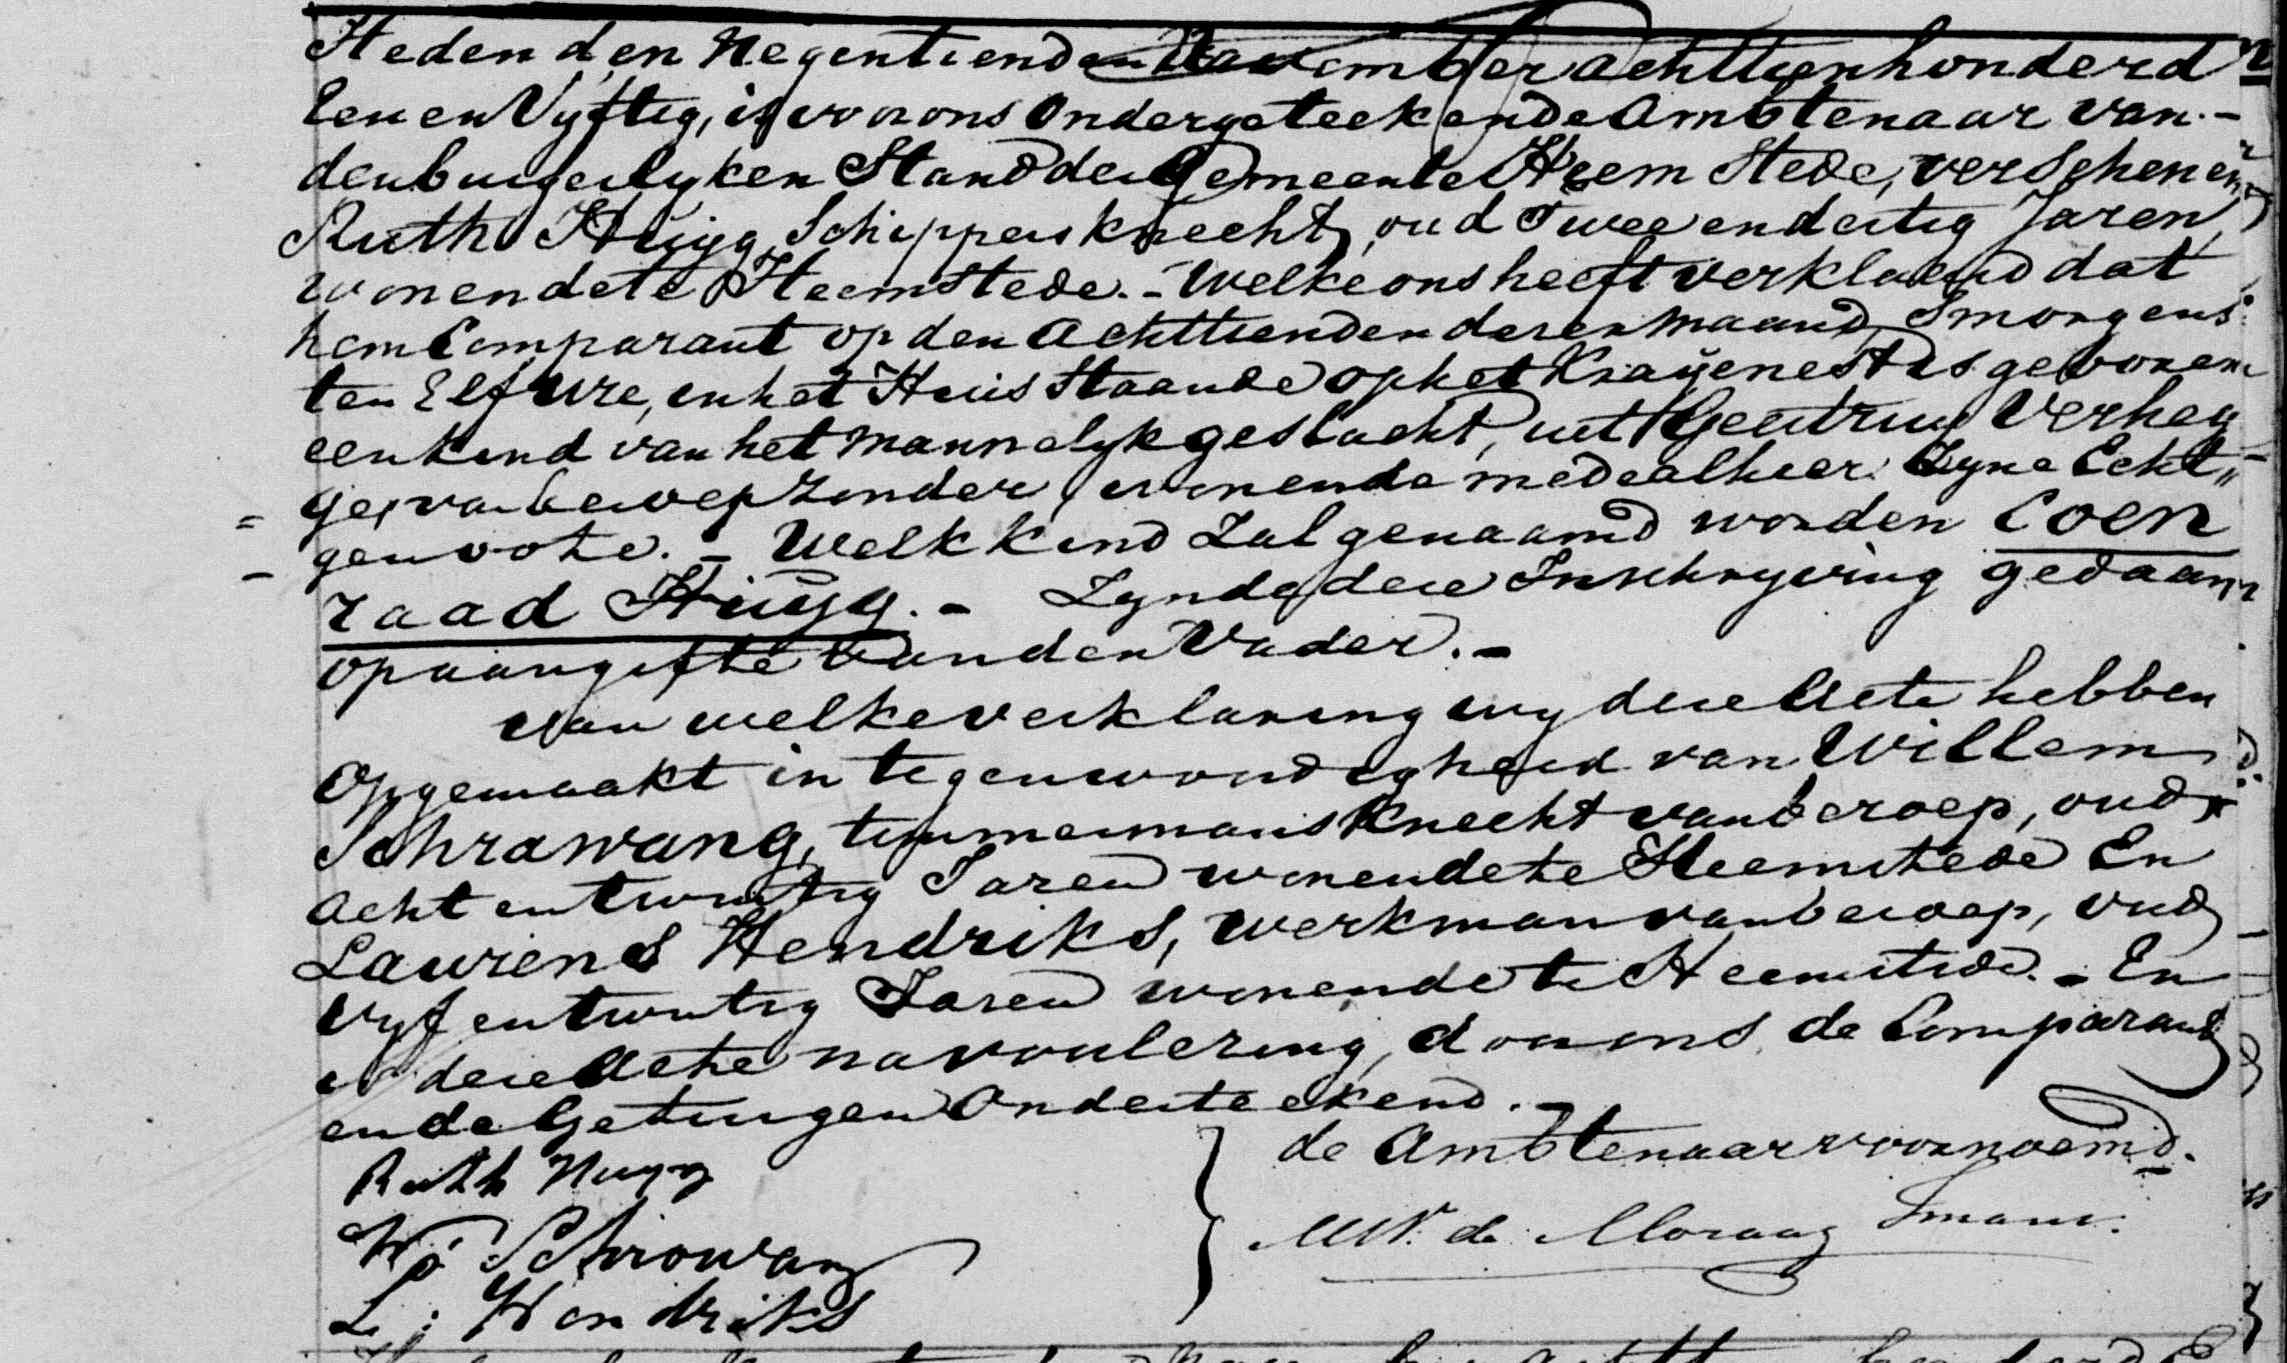 Heden den Negentienden November achttienhonderd
Een en Vyftig, is voor ons Ondergeteekende Ambtenaar van.-
den burgerlyken Stand der Gemeente Heemstede, verschenen
Ruth Huijg, Schippersknecht, oud Twee en dertig Jaren,
wonende te Heemstede.- Welke ons heeft verklaard dat
hem Comparant op den Achttienden dezer maand, Smorgens
ten Elf ure, in het Huis Staande op het Krayenest is geboren
een kind van het Mannelyk geslacht, uit Geertruy Verhey
= ge, van beroep zonder, wonende mede alhier Zyne Echt„
- genoote. - Welk kind Zal genaamd worden Coen
raad Huijg. - Zynde deze Inschryving gedaan
op aangifte van den Vader. -
Van welke verklaring wy deze Acte hebben
Opgemaakt in tegenwoordigheid van Willem
Schrawang, timmermansknecht van beroep, oud
Acht en twintig Jaren wonende te Heemstede En
Laurens Hendriks, werkman van beroep, oud
Vyf en twintig Jaren wonende te Heemstede. - En
is deze Acte na voorlezing, door ons, de Comparant
en de Getuigen Onderteekend. -
Ruth Huyg
de Ambtenaar voornoemd.
W. Schrowang
L: Hendriks